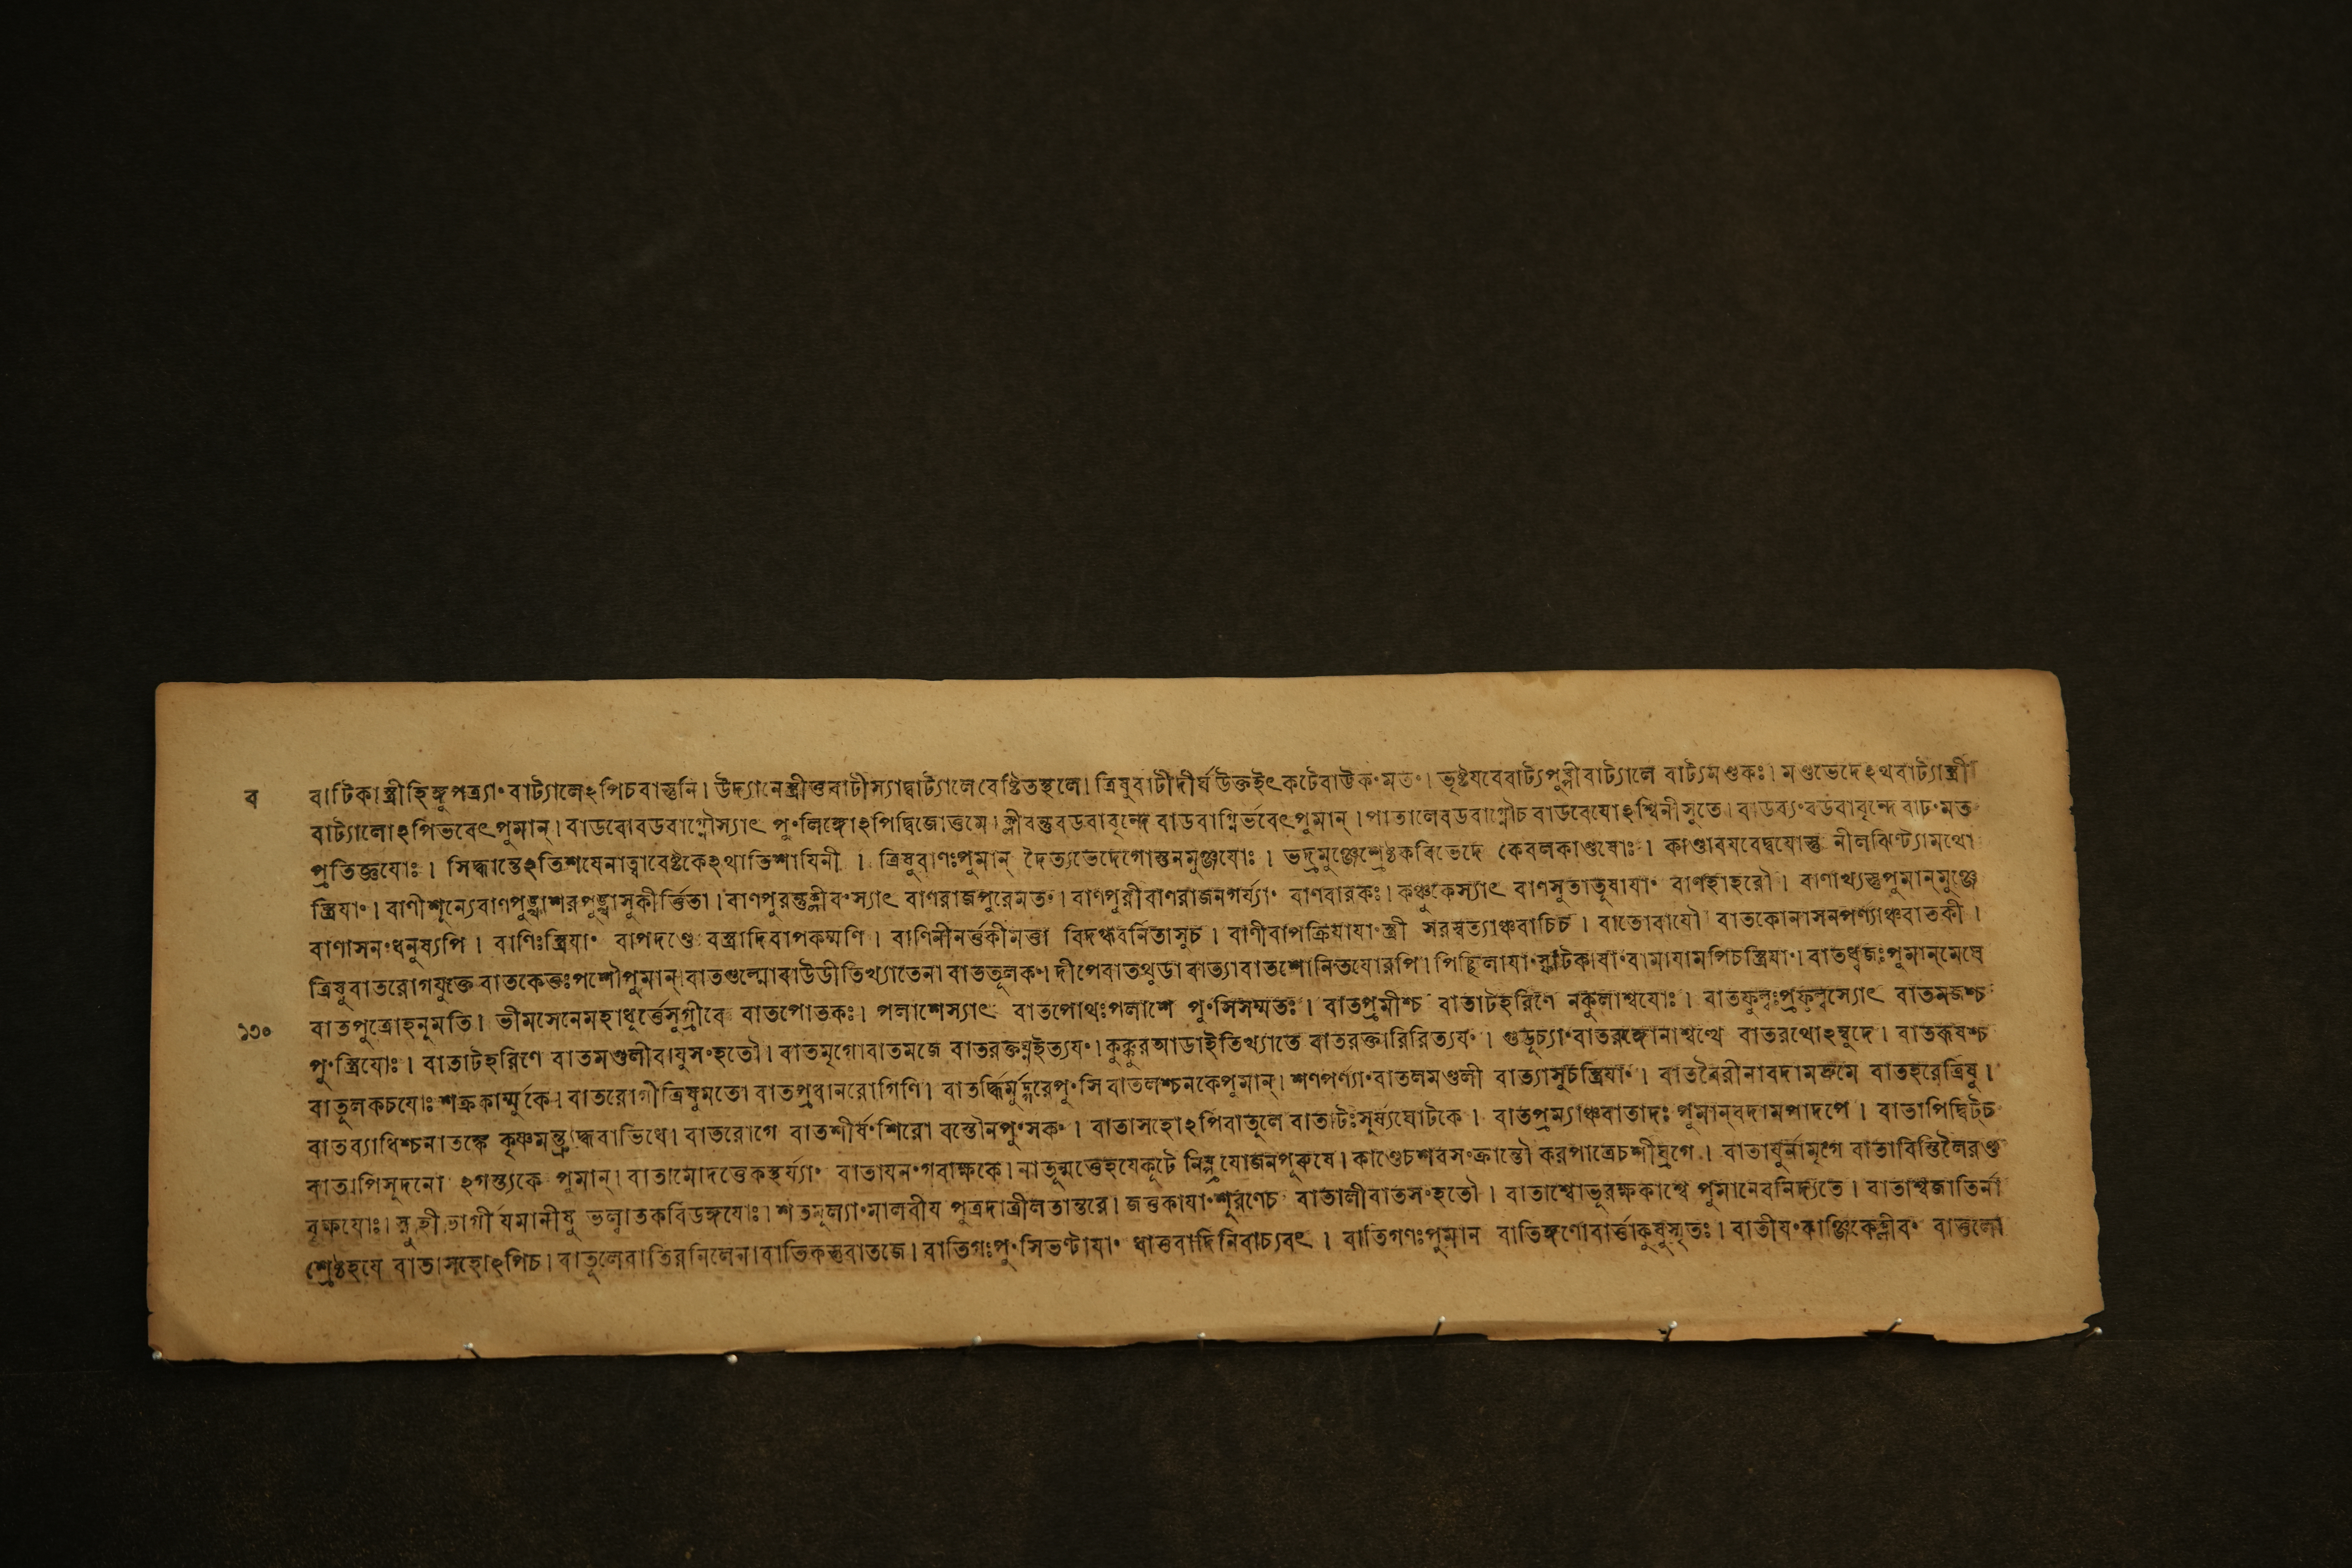 ব
বাটিকাস্ত্রীহিঙ্গুপত্র্যাং বাট্যালেঽপিচবাস্তুনি। উদ্যানেস্ত্রীত্তবাটীস্যাদ্বাট্যালেবেষ্টিতস্থলে। ত্রিষুবাটীদীর্ঘউক্তইৎকটেবাউকংমতং। ভৃষ্টযবেবাট্যপুষ্পীবাট্যালে বাট্যমণ্ডকঃ। মণ্ডভেদেঽথবাট্যাস্ত্রী
বাট্যালোঽপিভবেৎপুমান্। বাডবোবডবাগ্নৌস্যাৎ পুংলিঙ্গোঽপিদ্বিজোত্তমে। ক্লীবন্তুবডবাবৃন্দে বাডবাগ্নির্ভবেৎপুমান্। পাতালেবডবাগ্নৌচ বাডবেযোঽশ্বিনীসুতে। বাডব্যংবডবাবৃন্দে বাঢংমত
প্রতিজ্ঞযোঃ। সিদ্ধান্তেঽতিশযেনাত্বাবেষ্টকেঽথাতিশাযিনী। ত্রিষুবাণঃপুমান্ দৈত্যভেদেগোস্তনমুঞ্জযোঃ। ভদ্রমুঞ্জেশ্রেষ্ঠকবিভেদে কেবলকাণ্ডযোঃ। কাণ্ডাবযবেদ্বযোস্তু নীলঝিণ্ট্যামথো
স্ত্রিযাং। বাণীশূন্যেবাণপুঙ্খাশরপুঙ্খাসুকীর্ত্তিতা। বাণপুরন্তুক্লীবংস্যাৎ বাণরাজপুরেমতং। বাণপুরীবাণরাজনগর্য্যাং বাণবারকঃ। কঞ্চুকেস্যাৎ বাণসুতাতুষাযাং বাণহাহরৌ। বাণাখ্যস্তুপুমান্মুঞ্জে
বাণাসনংধনুষ্যপি। বাণিঃস্ত্রিযাং বাপদণ্ডে বস্ত্রাদিবাপকম্মণি। বাণিনীনর্ত্তকীমত্তা বিদগ্ধবনিতাসুচ। বাণীবাপক্রিযাযাংস্ত্রী সরস্বত্যাঞ্চবাচিচ। বাতোবাযৌ বাতকোনাসনপর্ণ্যাঞ্চবাতকী।
ত্রিষুবাতরোগযুক্তে বাতকেতঃপশৌপুমান্।বাতগুল্মোবাউডীতিখ্যাতেনা বাততূলকং। দীপেবাতথুডা বাত্যাবাতশোনিতযোরপি। পিচ্ছিলাযাংস্ফোটিকাযাংবামাযামপিচস্ত্রিযাং। বাতধ্বজঃপুমান্মেঘে
১৩০
বাতপুত্রোহনুমতি। ভীমসেনেমহাধূর্ত্তেসুগ্রীবে বাতপোতকঃ। পলাশেস্যাৎ বাতপোথঃপলাশে পুংসিসম্মতঃ। বাতপ্রমীশ্চ বাতাটহরিণে নকুলাশ্বযোঃ। বাতফুল্লঃপ্রফুল্লস্যোৎ বাতমজশ্চ
পুংস্ত্রিযোঃ। বাতাটহরিণে বাতমণ্ডলীবাযুসংহতৌ। বাতমৃগোবাতমজে বাতরক্তঘ্নইত্যযং। কুক্কুরআডাইতিখ্যাতে বাতরক্তারিরিত্যযং। গুডূচ্যাংবাতরঙ্গোনাশ্বত্থে বাতরথোঽম্বুদে। বাতরূষশ্চ
বাতুলকচযোঃশক্রকার্ম্মুকে। বাতরোগীত্রিষুমতো বাতপ্রবানরোগিণি। বাতর্দ্ধির্মুদ্গরেপুংসি বাতলশ্চনকেপুমান্। শণপর্ণ্যাংবাতলমণ্ডলী বাত্যাসুচস্ত্রিযাং। বাতবৈরীনাবদামদ্রুমে বাতহরেত্রিষু।
বাতব্যাধিশ্চনাতঙ্কে কৃষ্ণমন্তু বাভিধে। বাতরোগে বাতশীর্ষংশিরো বস্তৌনপুংসকং। বাতাসহোঽপিবাতুলে বাতাটঃসূর্য্যঘোটকে। বাতপ্রম্যাঞ্চবাতাদঃ পুমান্বদামপাদপে। বাতাপিদ্বিট্চ
বাতাপিসুদনো ঽগস্ত্যকে পুমান্। বাতামোদত্তেকস্থর্য্যাং বাতাযনংগবাক্ষকে। নাতূন্মত্তেহযেকূটে যোজনপুরুষে। কাণ্ডেচশবসংক্রান্তৌ করপাত্রেচশীঘ্রগে। বাতাযুর্নামৃগে বাতাবিস্তিলৈরণ্ড
বৃক্ষযোঃ। স্নুহী ভাগী যমানীষু ভল্লাতকবিডঙ্গযোঃ। শতমূল্যাংমালবীয পুত্রদাত্রীলতান্তরে। জতুকাযাংশূরণেচ বাতালীবাতসংহতৌ। বাতাশ্বোভূরক্ষকাশ্বে পুমানেবনিদ্যতে। বাতাশ্বজাতির্না
শ্রেষ্ঠহযে বাতাসহোঽপিচ। বাতূলেবাতিরনিলেনা।বাতিকস্তুবাতজে। বাতিগঃপুংসিভণ্টাযাং ধাতুবাদিনিবাচ্যবৎ। বাতিগণঃপুমান বাতিঙ্গণোবার্ত্তাকুষুস্মৃতঃ। বাতীযংকাঞ্জিকেক্লীবং বাতুলো